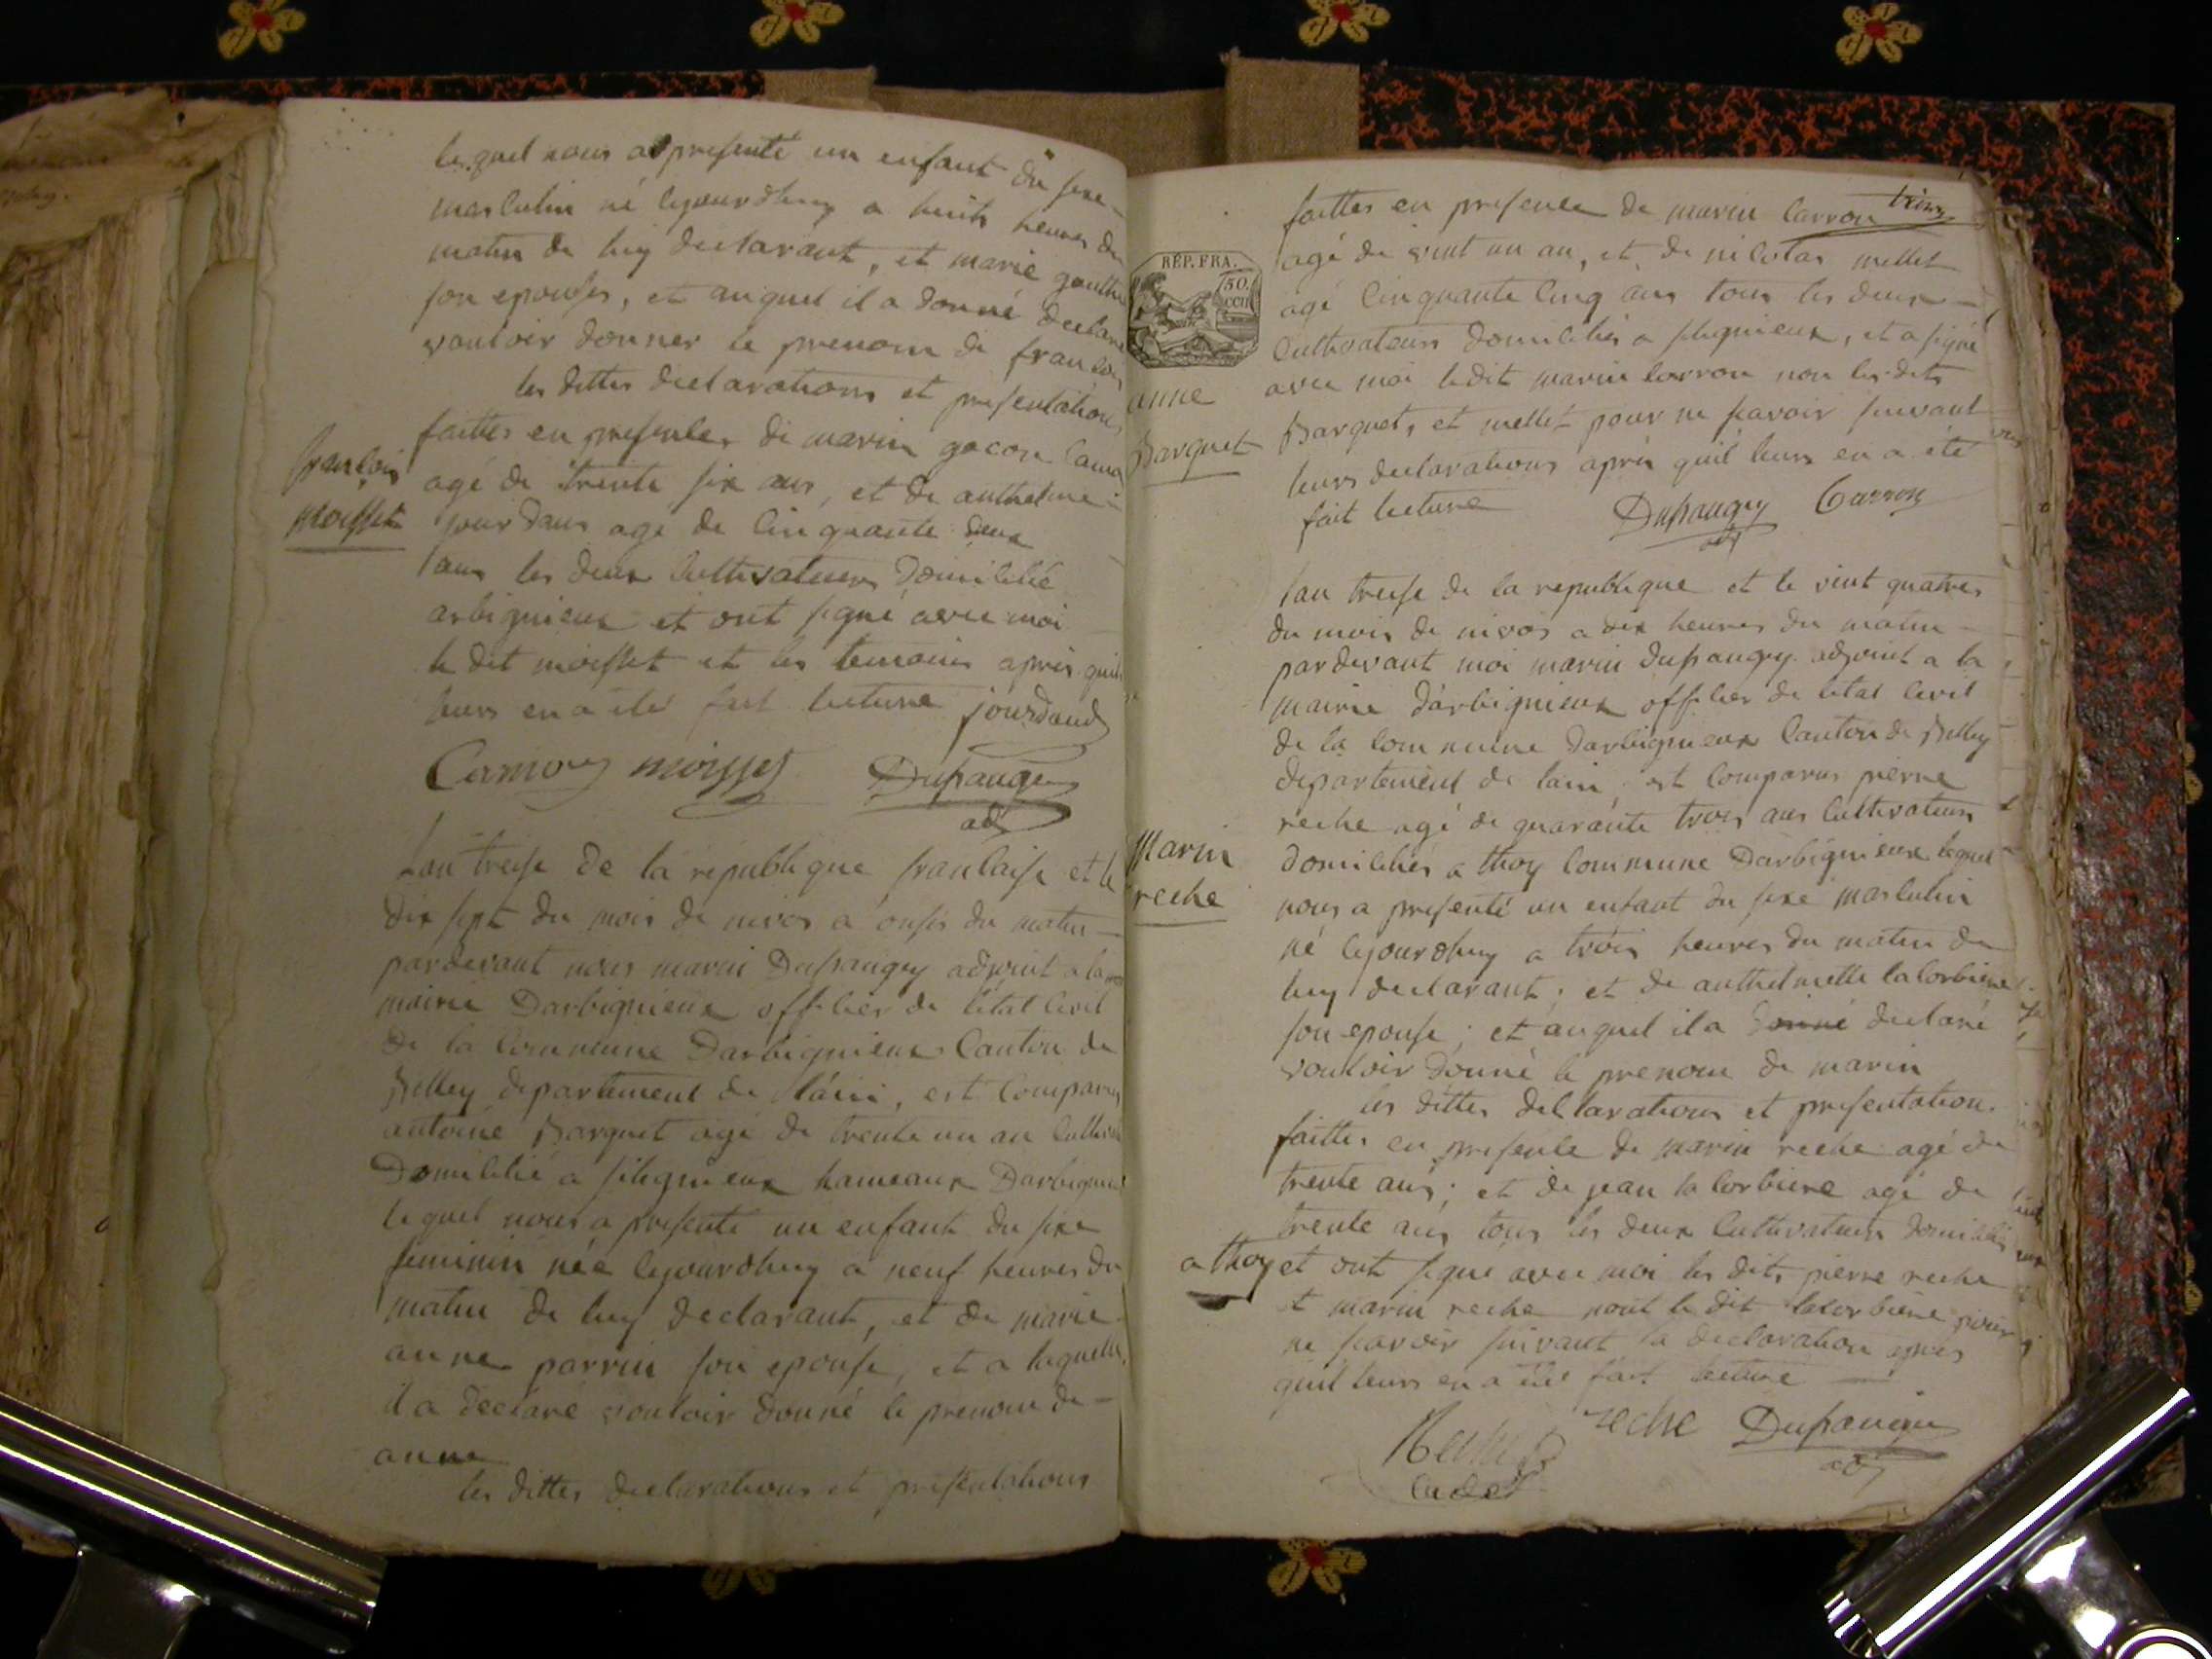 lequel nous a presenté un enfant du sexe
masculin né cejourdhuy a huits heures du
matin de luy declarant, et marie
son epouse, et auquel il a donné declaré
vouloir donner le prenom de francois
les dittes declarations et presentations
françois
moisset
faittes en presences de marin gocon
agé de trente six ans, et de anthelme
jourdans agé de cinquante deux
ans les deux cultivateurs domicilié
arbignieux et ont signé avec moi
le dit moisset et les temoins apres quil
leurs en a été fait lecture jourdand
Camoz moisset Dupaugey
adj
Lan treise de la république francaise et le
dix sept du mois de nivos a onses du matin
pardevant nous marin Dupaugey adjoint a la
mairie Darbignieux officier de létat civil
de la commune Darbignieux Canton de
Belley departement de láin, est comparus
antoine Barquet agé de trente un an
Domicilié a hameaux Darbignieux
lequel nous a presenté un enfant du sexe
feminin née cejourdhuy a neuf heures du
matin de luy declarant, et de marie
anne parrin son epouse, et a laquelle
il a declaré vouloir donné le prenom de
anne
les dittes declarations et presentations
RÉP. FRA.
50.
anne
Barquet
faittes en presence de marin Carron
agé de vint un an, et de nicolas mellet
agé cinquante cinq ans tous les deux
cultivateurs domiciliés a, et a signé
avec moi ledit marin carron non les dits
Barquet, et mellet pour ne savoir suivant
leurs declarations après quil leurs en a été
fait lecture
Dupaugey Carron
adj
lan treise de la republique et le vint quatres
du mois de nivos a dix heures du matin
pardevant moi marin dupaugey adjoint a la
mairie dárbignieux officier de létat civil
de la commune darbignieux Canton de Belley
departement de lain, est comparus pierre
Marin
reche
reche agé de quarante trois ans cultivateurs
domiciliés a thoy commune Darbignieux lequel
nous a presenté un enfant du sexe masculin
né cejourdhuy a trois heures du matin de
luy declarant, et de anthelmette lacorbiere
son epouse, et auquel il a donné declaré
vouloir donné le prenom de marin
les dittes declarations et presentation
faittes en presence de marin reche agé de
trente ans, et de jean lacorbiere agé de
trente ans tous les deux cultivateurs domiciliés
a thoy et ont signé avec moi les dits pierre reche
et marin reche nont le dit lacorbiere pour
ne savoir suivant sa declaration apres
quil leurs en a été fait lecture
reche Dupaugey
adj